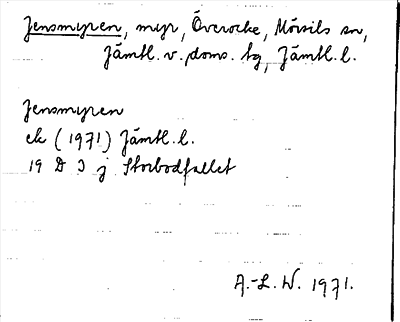 Jensmyren, myr, Överocke, Mörsils sn,
Jämtl. v. doms. tg, Jämtl. l.
Jensmyren
ek (1971) Jämtl. l.
19 D 3 j Storbodfallet
A.-L. W. 1971.